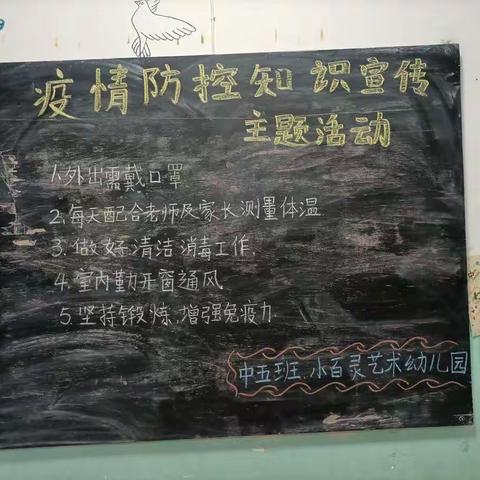 疫情防控知识宣传
主题活动
1.外出需戴口罩
2.每天配合老师及家长测量体温
3.做好清洁消毒工作.
4.室内勤开窗通风
5.坚持锻炼,增强免疫力
中五班、小百灵艺术幼儿园